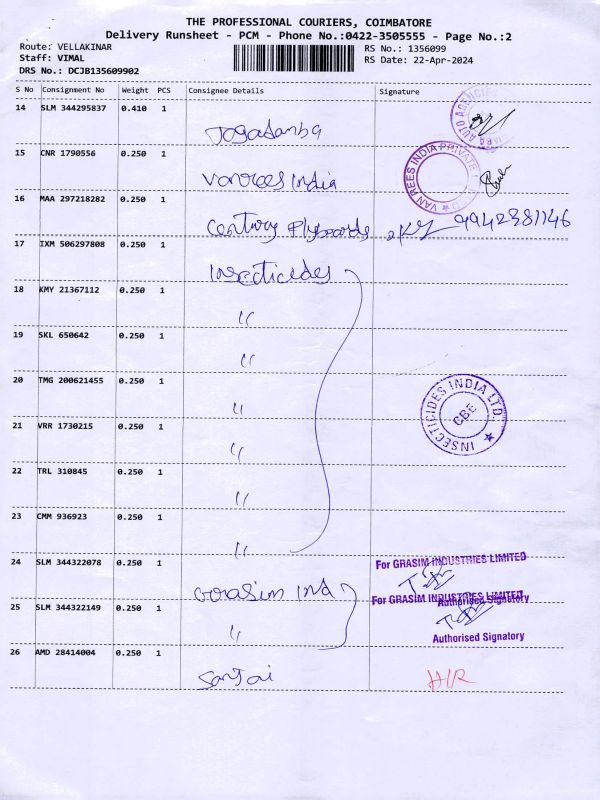 THE PROFESSIONAL COURIERS, COIMBATORE
Delivery Runsheet - PCM - Phone No.:0422-3505555 - Page No.:2
Route: VELLAKINAR RS No.: 1356099
Staff: VIMAL RS Date: 22-Apr-2024
DRS No.: DCJB135609902
S No Consignment No Weight PCS Consignee Details Signature
14 SLM 344295837 0.410 1
Jagadamba AUTO AGENCIES
15 CNR 1790556 0.250 1
Vanrees India VAN REES INDIA PRIVATE
16 MAA 297218282 0.250 1
Century Plyboards 9942381146
17 IXM 506297808 0.250 1
Insecticides
18 KMY 21367112 0.250 1
"
19 SKL 650642 0.250 1
"
20 TMG 200621455 0.250 1
" INSECTICIDES INDIA LTD. CBE
21 VRR 1730215 0.250 1
"
22 TRL 310845 0.250 1
"
23 CMM 936923 0.250 1
"
24 SLM 344322078 0.250 1 For GRASIM INDUSTRIES LIMITED
Grasim Ind
For GRASIM INDUSTRIES LIMITED
Authorised Signatory
25 SLM 344322149 0.250 1
"
Authorised Signatory
26 AMD 28414004 0.250 1
Sanjai H/R